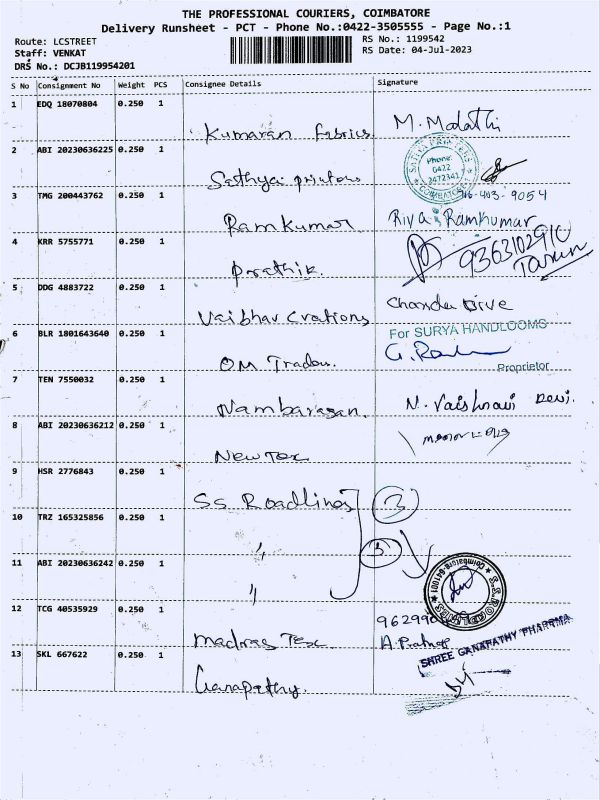 THE PROFESSIONAL COURIERS, COIMBATORE
Delivery Runsheet - PCT - Phone No.:0422-3505555 - Page No.:1
Route: LCSTREET
RS No.: 1199542
Staff: VENKAT
RS Date: 04-Jul-2023
DRS No.: DCJB119954201
S No Consignment No Weight PCS Consignee Details Signature
1 EDQ 18070804 0.250 1 Kumaran fabrics M. Malathi
2 ABI 20230636225 0.250 1 Sathya printers
Phone: 0422 2472341
COIMBATORE
3 TMG 200443762 0.250 1 Ramkumar Riya Ramkumar
4 KRR 5755771 0.250 1 prathik. 9363102910
Tarun
5 DDG 4883722 0.250 1 Vaibhav Crations
For SURYA HANDLOOMS
6 BLR 1801643640 0.250 1 OM Trador.
Proprietor
7 TEN 7550032 0.250 1 Nambarasan. N. Vaishnavi Devi.
8 ABI 20230636212 0.250 1 New Tex
9 HSR 2776843 0.250 1 SS Roadlines 3
10 TRZ 165325856 0.250 1 " 3
11 ABI 20230636242 0.250 1 "
Coimbatore-641001
12 TCG 40535929 0.250 1 Madras Tex
SHREE GANAPATHY PHARRMA
13 SKL 667622 0.250 1 Ganapathy.